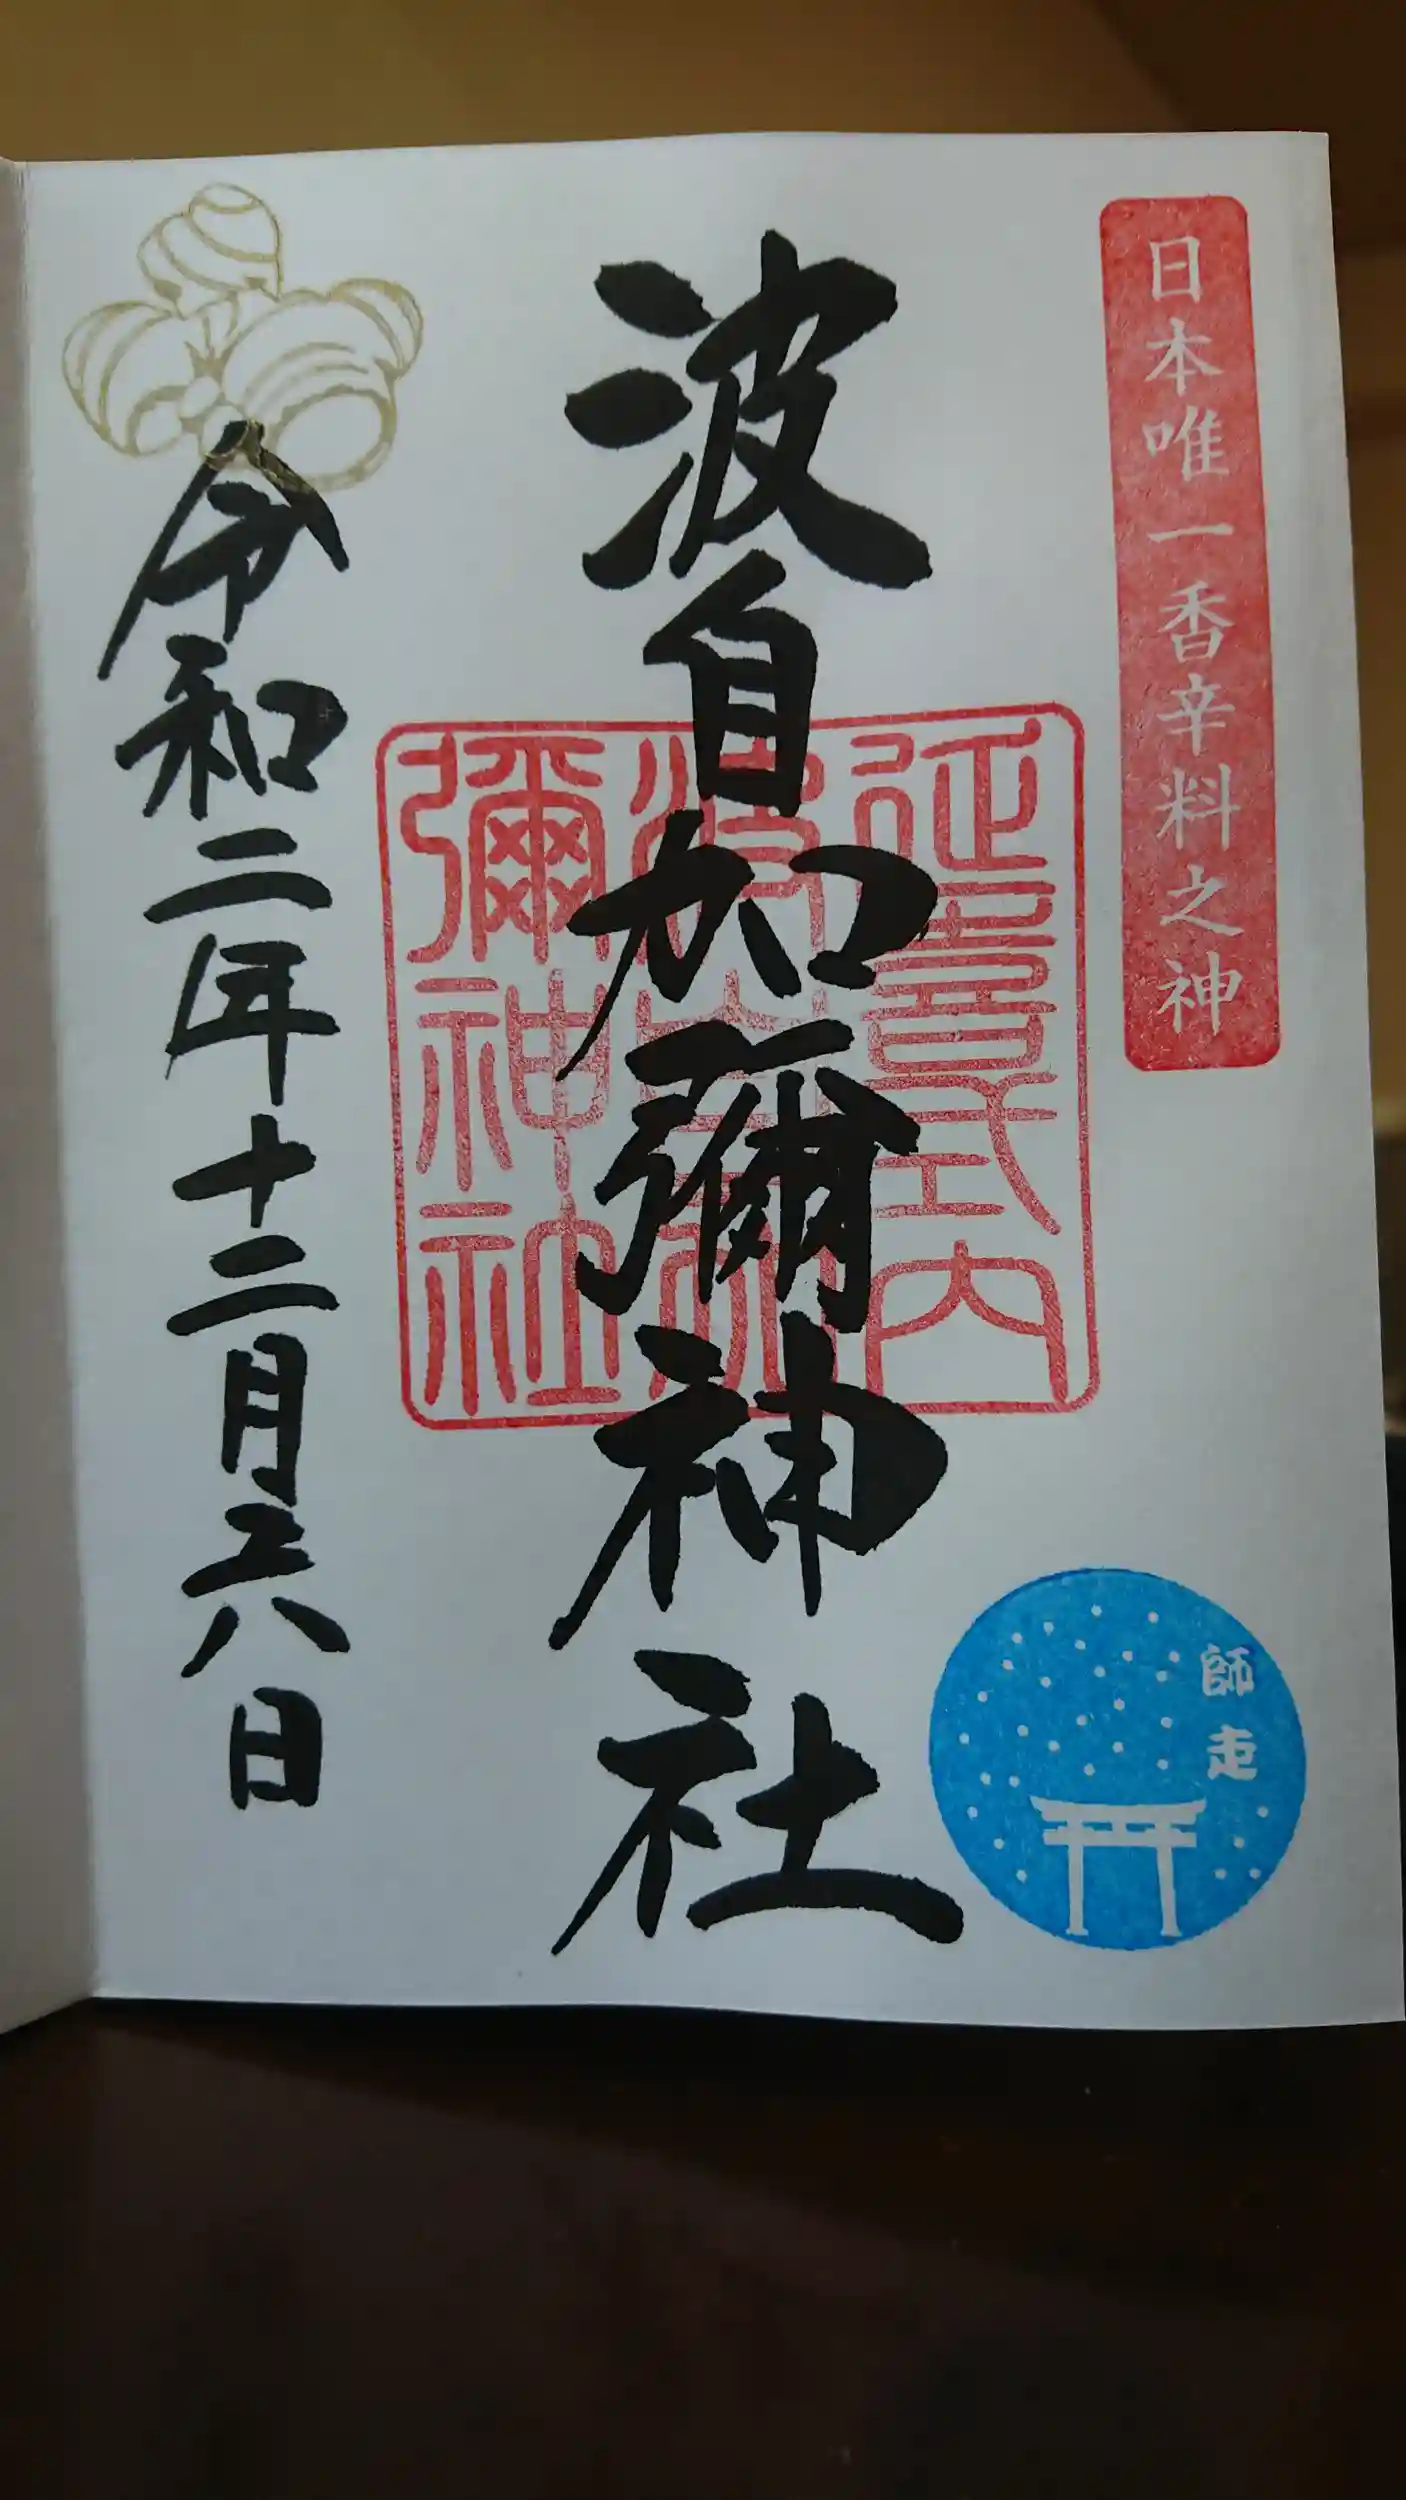 日本唯一香辛料之神
師走
波自加彌神社
延喜式内
波自加
彌神社
令和二年十二月六日